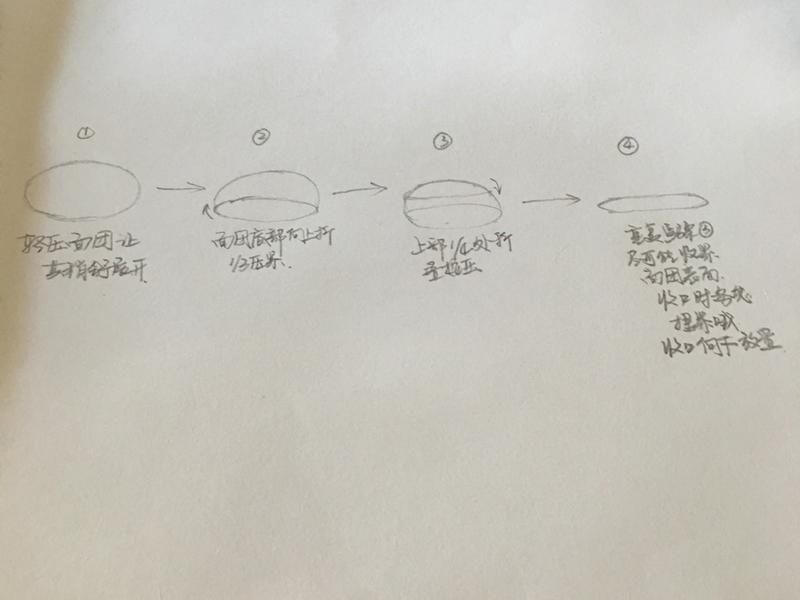 ①
②
③
④
轻压面团让
其稍舒展开
面团底部向上折
1/3压紧.
上部1/4处折
叠按压
重复步骤③
尽可能收紧
面团表面.
收口时务必
捏紧哦
收口向下放置